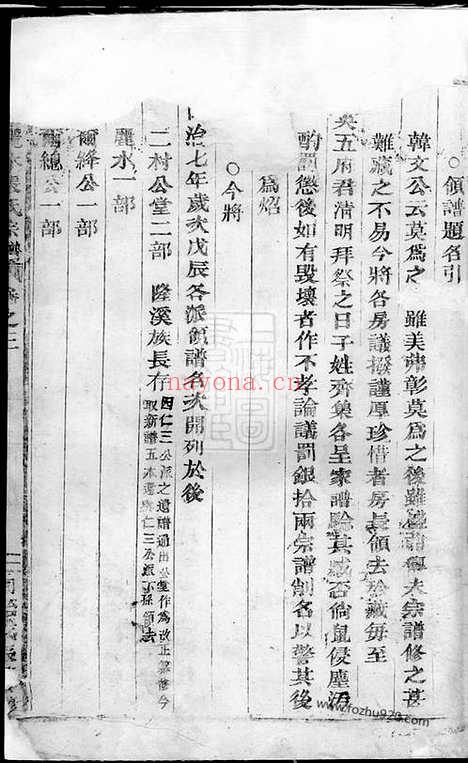 ○領譜題名引
韓文公云莫為之 雖美弗彰莫為之後雖 宗譜修之甚
難藏之不易今將各房議撥謹厚珍惜者房長領去珍藏每至
央五府君清明拜祭之日子姓齊集各呈家譜驗其臧否倘鼠侵塵污
酌罰懲後如有毀壞者作不孝論議罰銀拾兩宗譜削名以警其後
為炤
○今將
治七年歲次戊辰各派領譜名次開列於後
二村公堂二部 隆溪族長存 因仁三公派之遺譜通出公堂作為改正 今
取新譜五本 仁三公派下孫領去
麗水一部
爾絳公一部
爾總公一部
氏宗譜 卷之三
www.fozhu920.com
nayona.cn